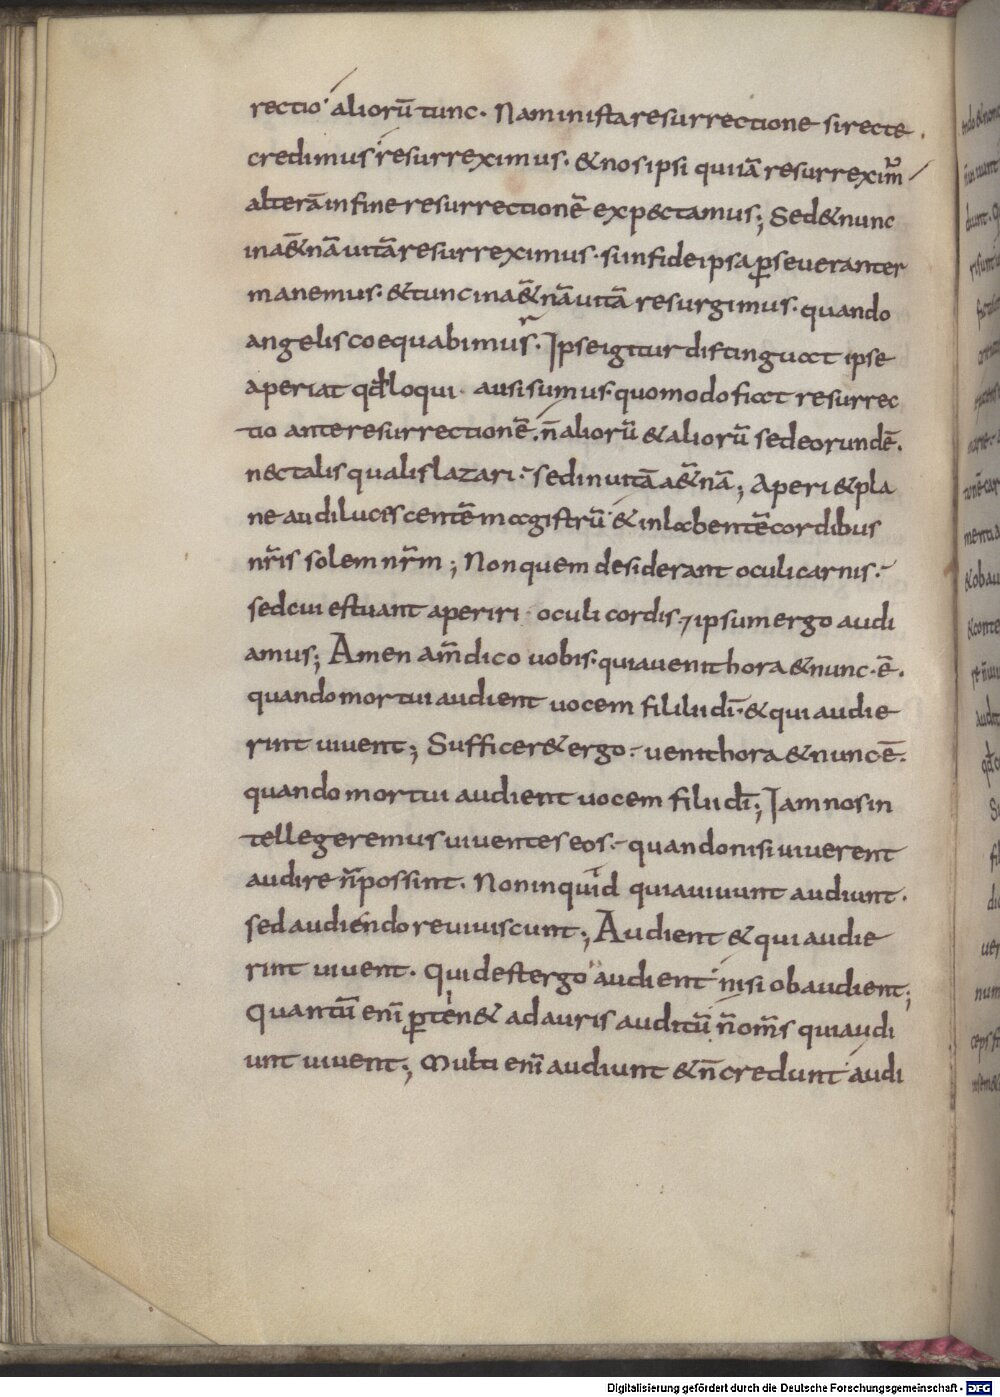 rectio aliorū tunc· Nam in ista resurrectione si recte
credimus resurreximus· & nos ipsi qui iā resurreximꝰ
alterā in fine resurrectionē expectamus; Sed & nunc
in aet̄nā uitā resurreximus· si in fide ipsa ꝑseueranter
manemus· & tunc in aet̄nā uitā resurgimus· quando
angelis coequabimur· Ipse igitur distinguat ipse
aperiat qđ loqui ausi sumus quomodo fiat resurrec
tio ante resurrectionē· n̄ aliorū & aliorū sed eorundē·
nec talis qualis lazari· sed in uitā aet̄nā; Aperi& pla
ne audi lucescentē magistrū & inlabentē cordibus
nr̄is solem nr̄m; Non quem desiderant oculi carnis·
sed cui estuant aperiri oculi cordis· ipsum ergo audi
amus; Amen am̄ dico uobis· quia uenit hora & nunc ē·
quando mortui audient uocem filii dī· & qui audie
rint uiuent; Sufficer& ergo· uenit hora & nunc ē·
quando mortui audient uocem filii dī; Iam nos in
tellegeremus uiuentes eos· quando nisi uiuerent
audire n̄ possint· Non inquid quia uiuunt audiunt·
sed audiendo reuiuiscunt; Audient & qui audie
rint uiuent· Quid est ergo audient nisi obaudient;
Quantū enī ꝑtin& ad auris auditū n̄ om̄s qui audi
unt uiuent; Multi enī audiunt & n̄ credunt audi
Digitalisierung gefördert durch die Deutsche Forschungsgemeinschaft - DFG